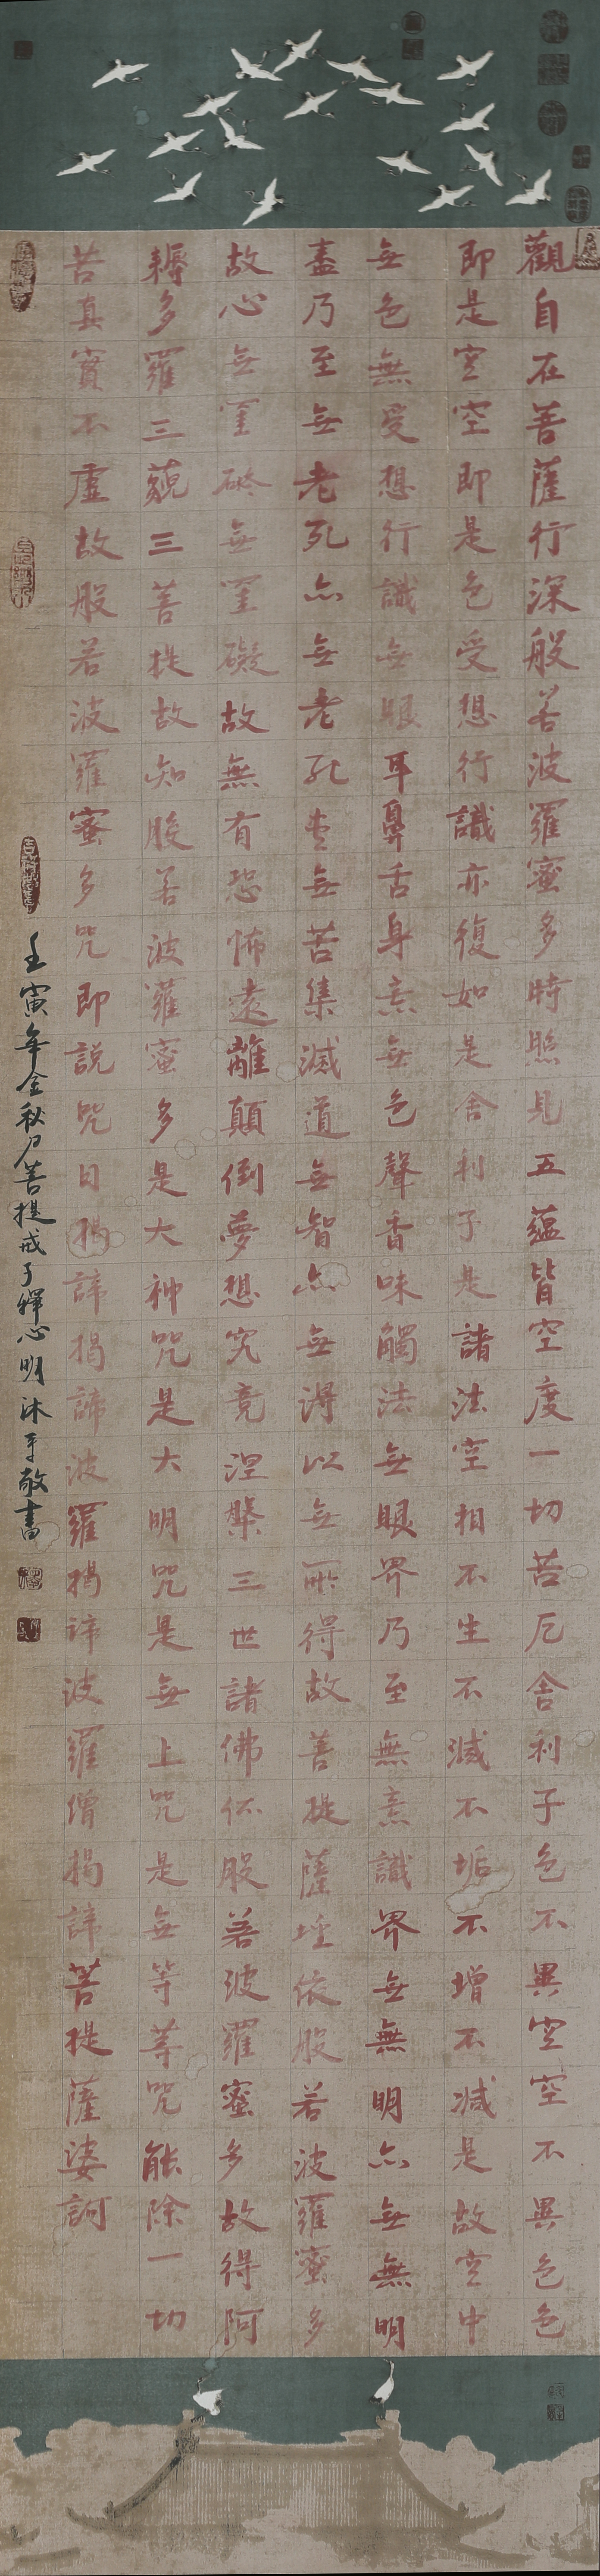 觀自在菩薩行深般若波羅蜜多時照見五蘊皆空度一切苦厄舍利子色不異空空不異色色
即是空空即是色受想行識亦復如是舍利子是諸法空相不生不滅不垢不增不減是故空中
無色無受想行識無眼耳鼻舌身意無色聲香味觸法無眼界乃至無意識界無無明亦無無明
盡乃至無老死亦無老死盡無苦集滅道無智亦無得以無所得故菩提薩埵依般若波羅蜜多
故心無罣礙無罣礙故無有恐怖遠離顛倒夢想究竟涅槃三世諸佛依般若波羅蜜多故得阿
耨多羅三藐三菩提故知般若波羅蜜多是大神咒是大明咒是無上咒是無等等咒能除一切
苦真實不虛故般若波羅蜜多咒即說咒曰揭諦揭諦波羅揭諦波羅僧揭諦菩提薩婆訶
壬寅年金秋月菩提戒子釋心明沐手敬書